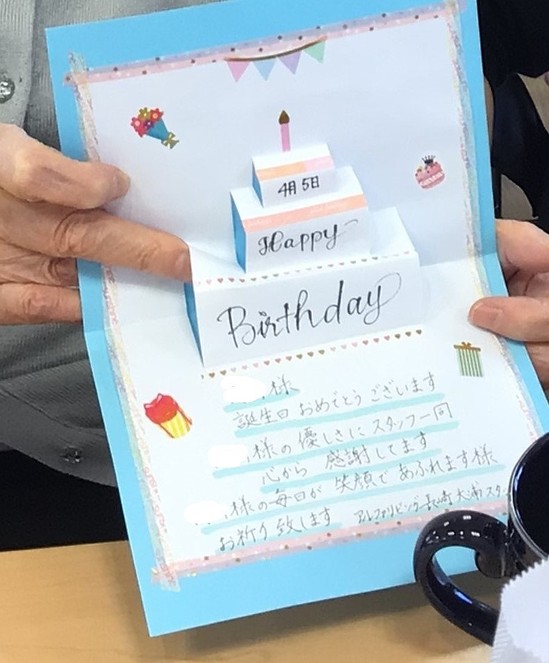 4月5日
Happy
Birthday
様
誕生日 おめでとう ございます
様の 優しさに スタッフ一同
心から 感謝してます
様の毎日が 笑顔で あふれます様
お祈り致します アルファリビング長崎大浦スタ